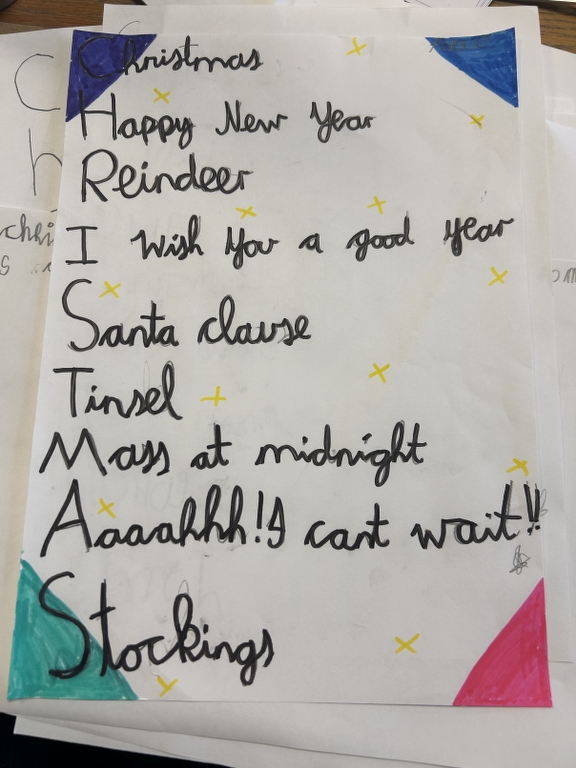 Christmas
Happy New Year
Reindeer
I wish you a good year
Santa clause
Tinsel
Mass at midnight
Aaaahhh! I cant wait!!
Stockings
C
h
chri